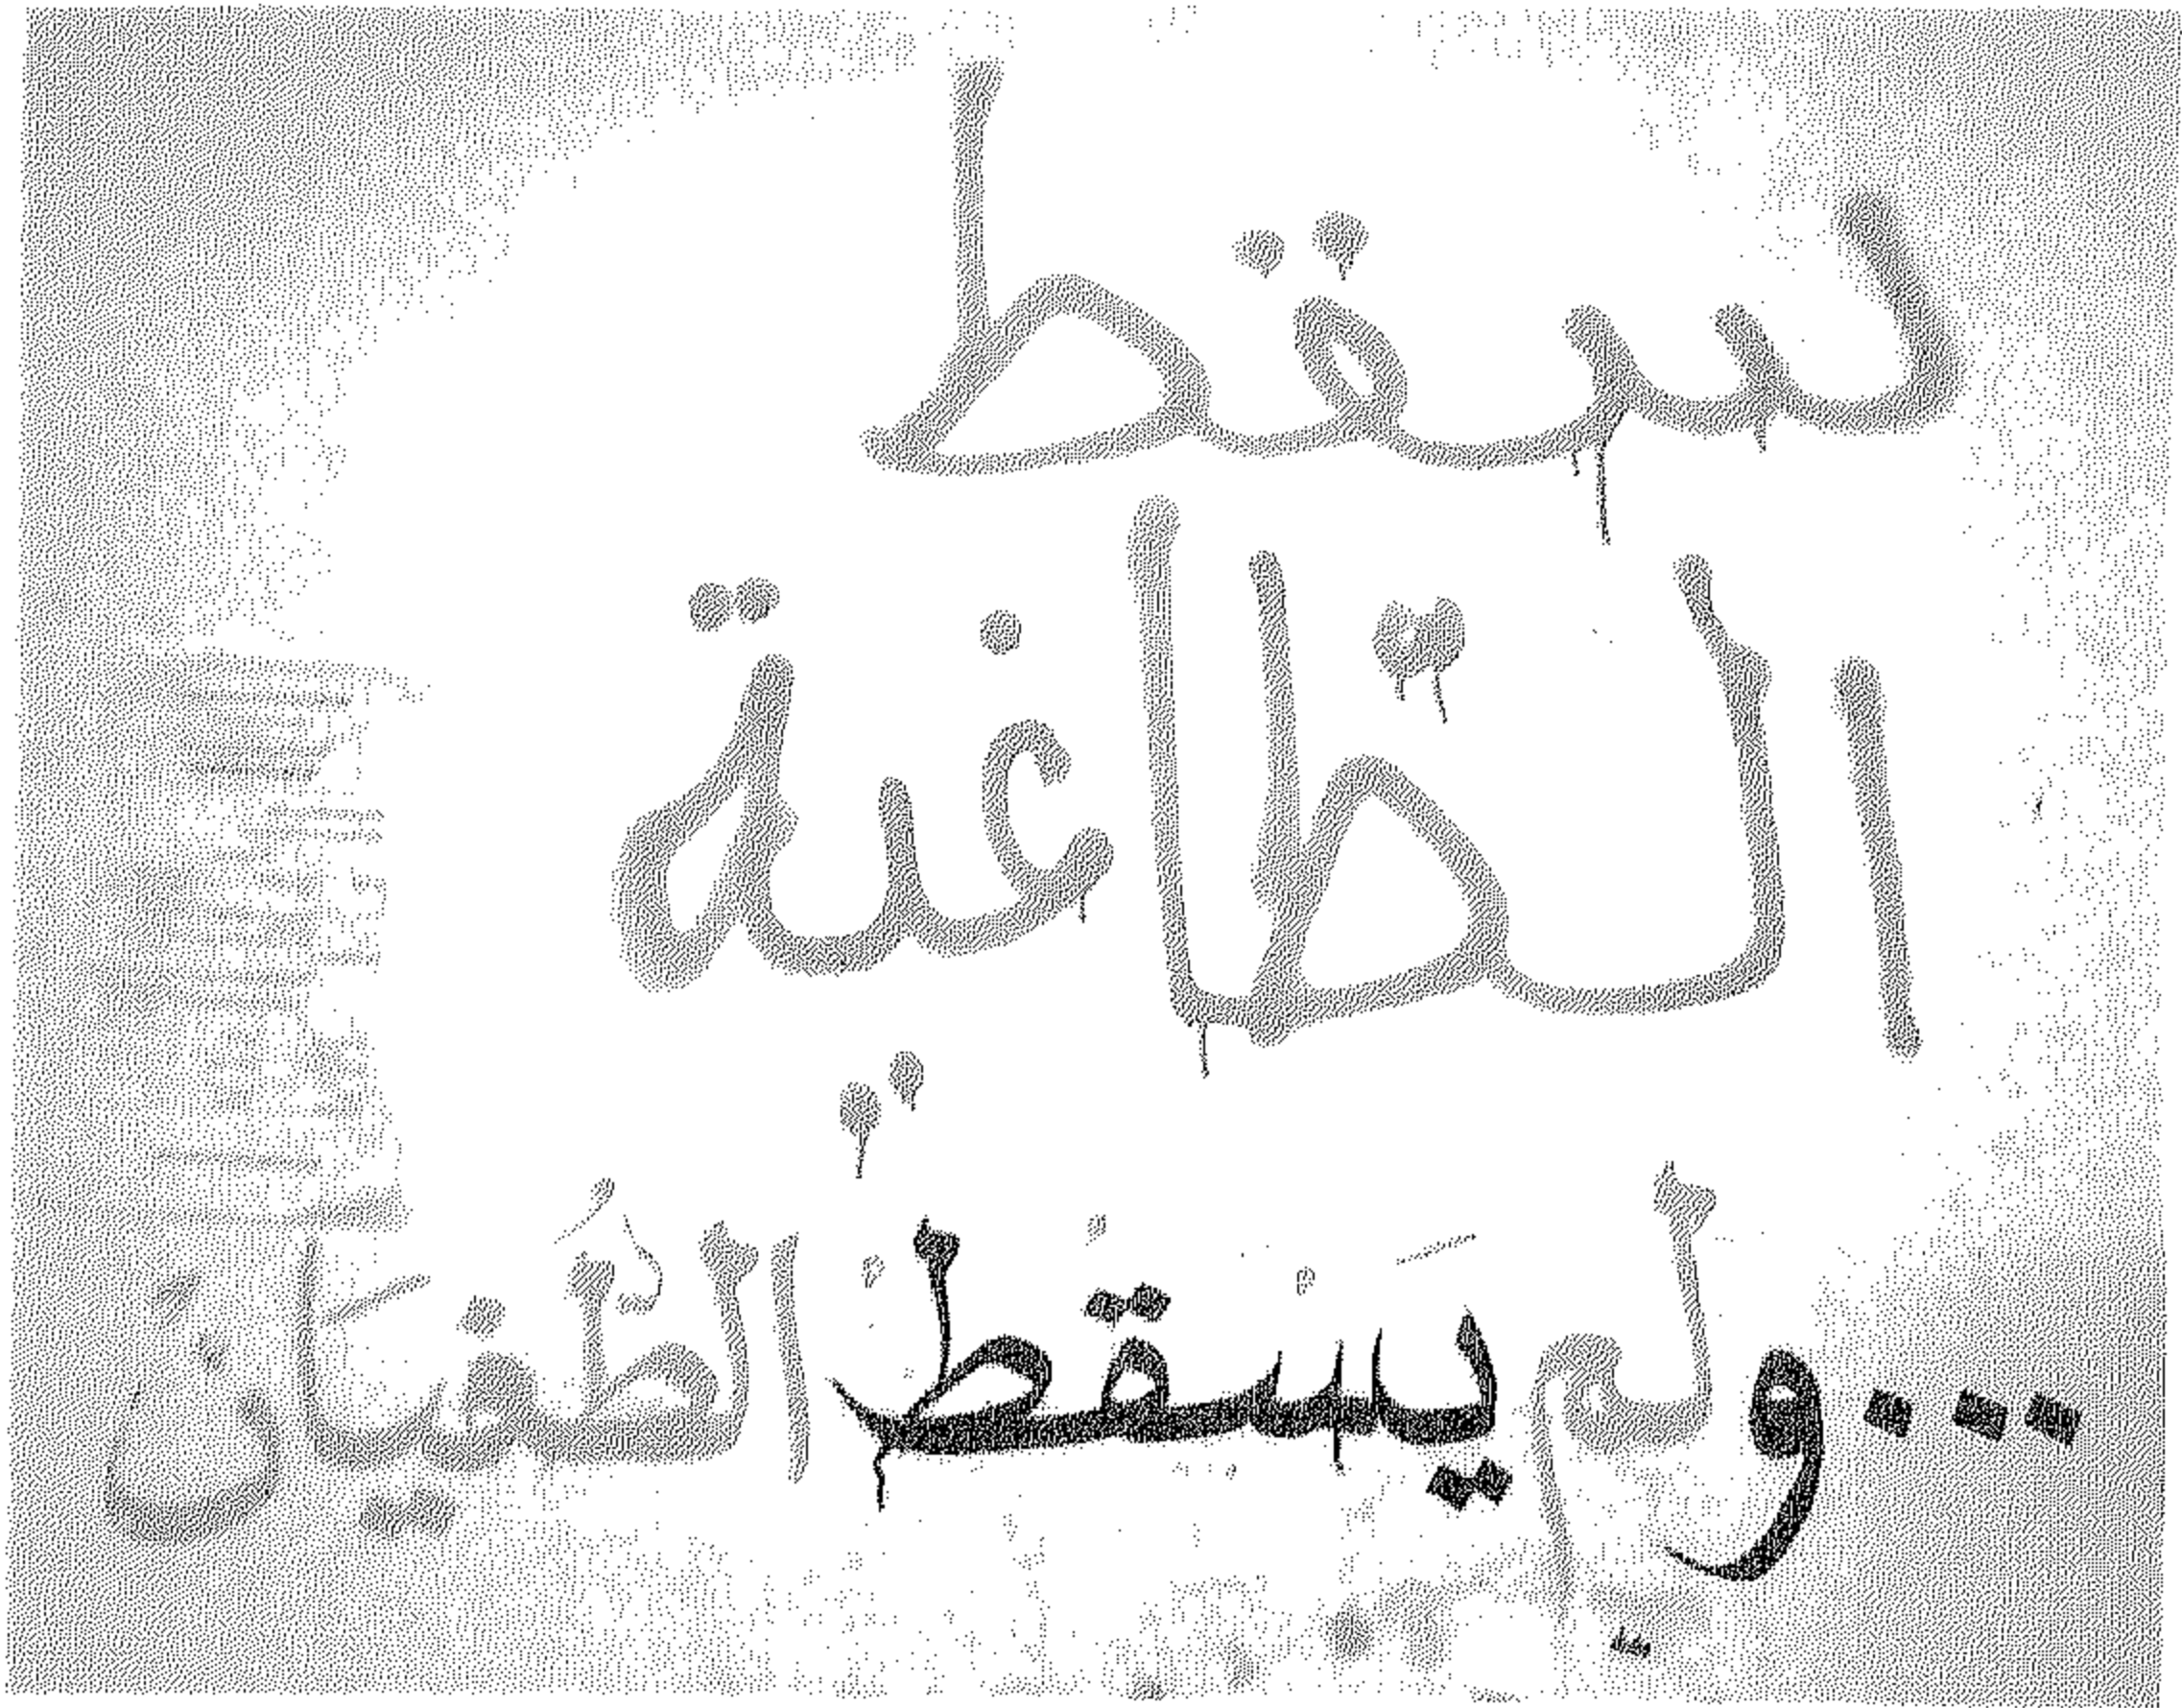 سقط
الطّاغية
...ولم يَسْقُطْ الطُّغيَان